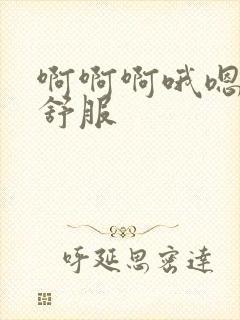 啊啊啊哦嗯
舒服
呼延思密達